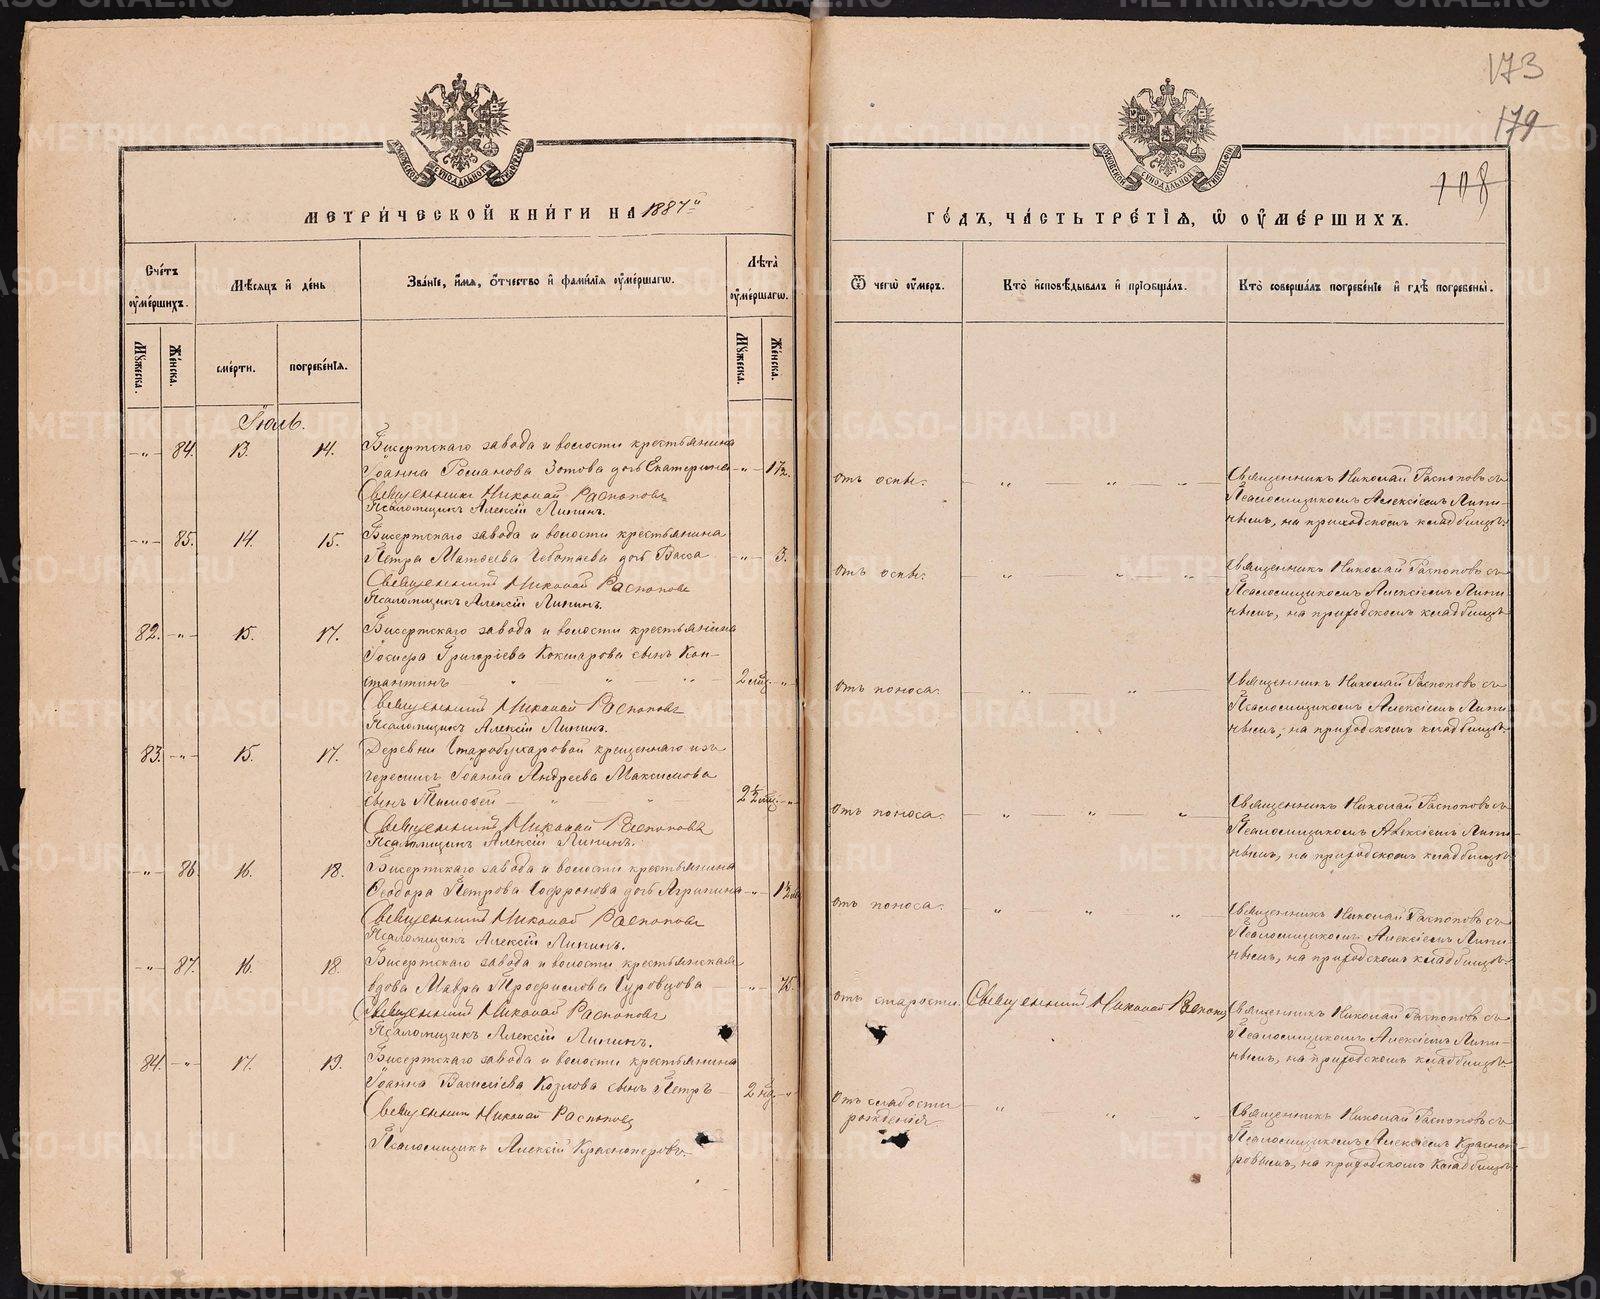 173
179
108
МЕТРИ́ЧЕСКОЙ КНИ́ГИ НА 1887й
ГО́ДЪ, ЧА́СТЬ ТРЕ́ТІѦ, Ѡ ОУ҆МЕ́РШИХЪ.
Сче́тъ оу҆ме́ршихъ.
Мѣ́сяцъ и҆ де́нь
Зва́нїе, и҆́мя, ѻ҆́тчество и҆ фами́лїя оу҆ме́ршагѡ.
Лѣ́та оу҆ме́ршагѡ.
Ѿ чегѡ̀ оу҆́меръ.
Кто̀ и҆сповѣ́дывалъ и҆ прїѡбща́лъ.
Кто̀ соверша́лъ погребе́нїе и҆ гдѣ̀ погребены̀.
Мꙋ́жеска.
Же́нска.
сме́рти.
погребе́нїя.
Мꙋ́жеска.
Же́нска.
Іюль.
-„- 84. 13. 14. Бисертскаго завода и волости крестьянина
Іоанна Романова Зотова дочь Екатерина -„- 1½.
Священникъ Николай Распоповъ
Псаломщикъ Алексій Липинъ.
отъ оспы.
Священникъ Николай Распоповъ съ
Псаломщикомъ Алексіемъ Липи-
нымъ, на приходскомъ кладбищѣ.
-„- 85. 14. 15. Бисертскаго завода и волости крестьянина
Петра Матѳеева Чеботаева дочь Васса -„- 3.
Священникъ Николай Распоповъ
Псаломщикъ Алексій Липинъ.
отъ оспы.
Священникъ Николай Распоповъ съ
Псаломщикомъ Алексіемъ Липи-
нымъ, на приходскомъ кладбищѣ
82. -„- 15. 17. Бисертскаго завода и волости крестьянина
Григоріева Кокшарова сынъ Кон-
стантинъ 2 мѣс. „
Священникъ Николай Распоповъ
Псаломщикъ Алексій Липинъ.
отъ поноса.
Священникъ Николай Распоповъ съ
Псаломщикомъ Алексіемъ Липи-
нымъ, на приходскомъ кладбищѣ.
83. -„- 15. 17. Деревни Старобухаровой крещеннаго изъ
черемисъ Іоанна Андреева Максимова
сынъ Тимоѳей 2½ мѣс. „
Священникъ Николай Распоповъ
Псаломщикъ Алексій Липинъ.
отъ поноса.
Священникъ Николай Распоповъ съ
Псаломщикомъ Алексіемъ Липи-
нымъ, на приходскомъ кладбищѣ
-„- 86. 16. 18. Бисертскаго завода и волости крестьянина
Ѳеодора Петрова Софронова дочь Агрипина -„-
Священникъ Николай Распоповъ
Псаломщикъ Алексій Липинъ.
отъ поноса.
Священникъ Николай Распоповъ съ
Псаломщикомъ Алексіемъ Липи-
нымъ, на приходскомъ кладбищѣ.
-„- 87. 16. 18. Бисертскаго завода и волости крестьянская
вдова Мавра Трофимова Суровцова -„- 75.
Священникъ Николай Распоповъ
Псаломщикъ Алексій Липинъ.
отъ старости.
Священникъ Николай Распопов
Священникъ Николай Распоповъ съ
Псаломщикомъ Алексіемъ Липи-
нымъ, на приходскомъ кладбищѣ
84. -„- 17. 19. Бисертскаго завода и волости крестьянина
Іоанна Василіева Козлова сынъ Петръ 2 нд. „
Священникъ Николай Распоповъ
Псаломщикъ Алексій Красноперовъ.
Отъ слабости
рожденія.
Священникъ Николай Распоповъ съ
Псаломщикомъ Алексіемъ Краснопе-
ровымъ, на приходскомъ кладбищѣ
METRIKI.GASO-URAL.RU